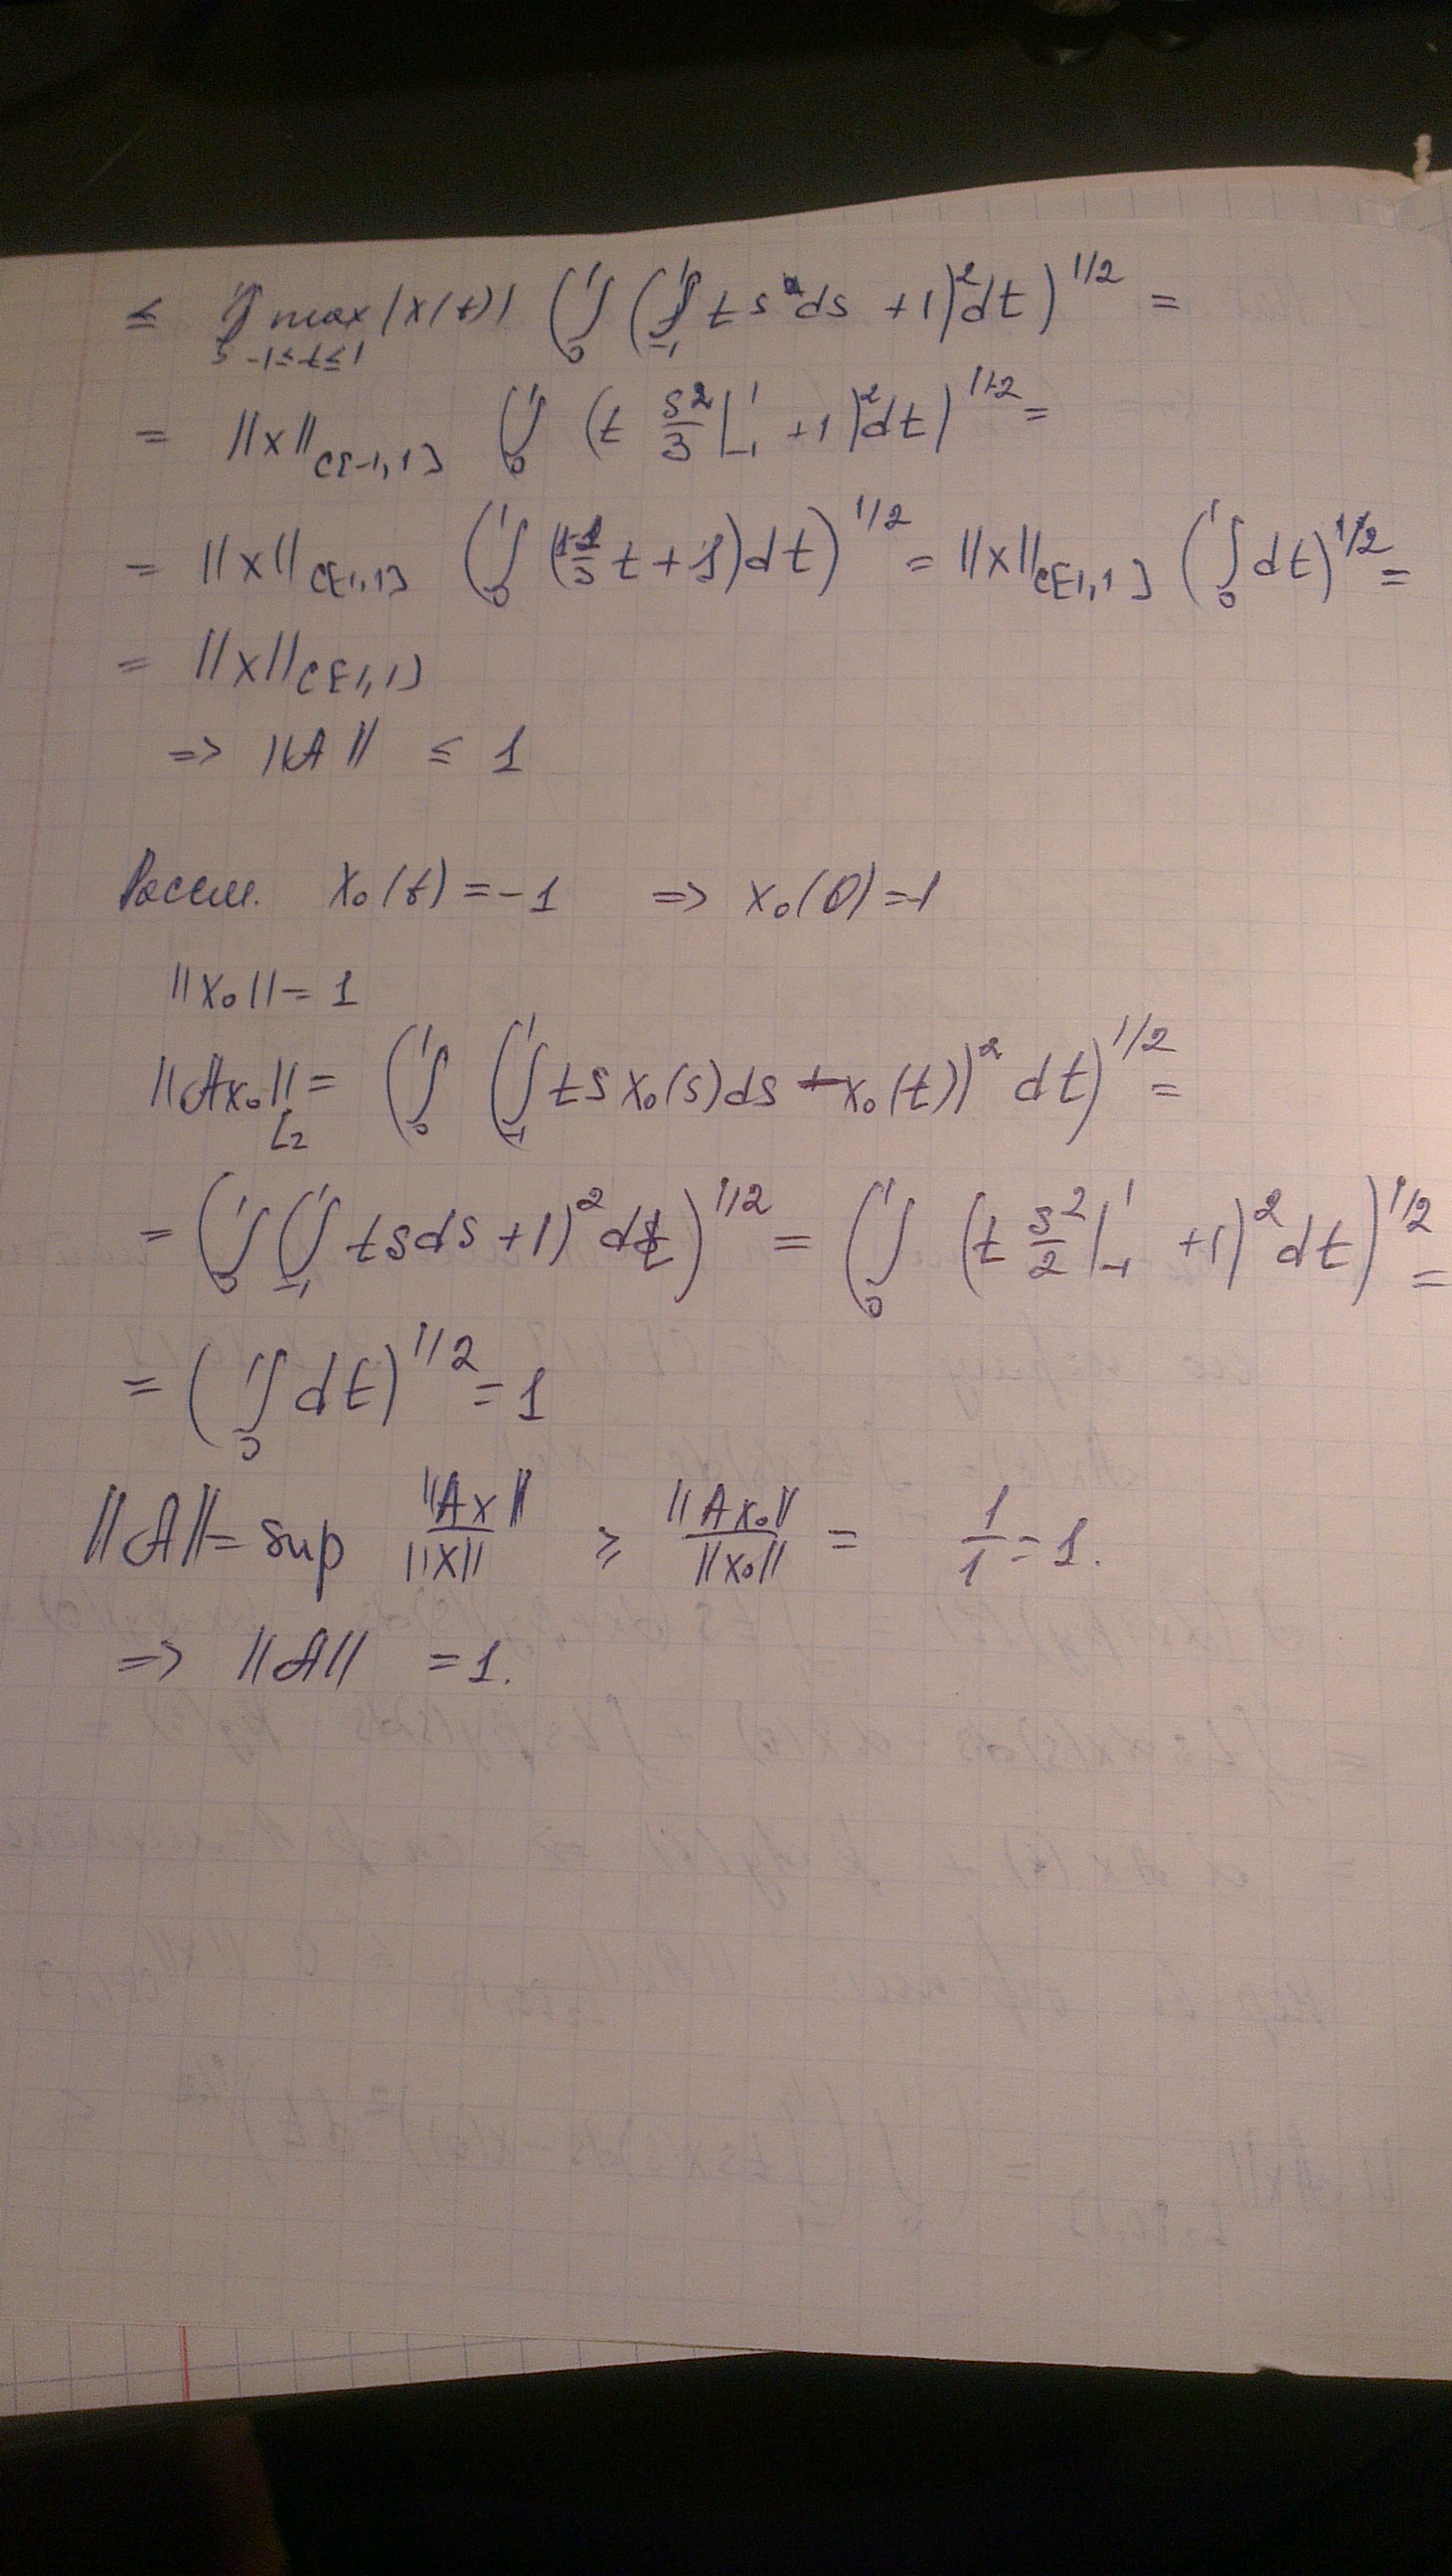 ≤ max |x(t)| (∫₀¹ (∫₋₁¹ t s ds + 1)² dt)^{1/2} =
-1≤t≤1
= ||x||_{C[-1,1]} ∫₀¹ (t s²/3 |₋₁¹ + 1)² dt)^{1/2} =
= ||x||_{C[-1,1]} (∫₀¹ (1-1/3 t + 1) dt)^{1/2} = ||x||_{C[-1,1]} (∫₀¹ dt)^{1/2} =
= ||x||_{C[-1,1]}
=> ||A|| ≤ 1
Рассм. x₀(t) = -1 => x₀(0) = -1
||x₀|| = 1
||Ax₀||_{L₂} = (∫₀¹ (∫₋₁¹ t s x₀(s) ds - x₀(t))² dt)^{1/2} =
= (∫₀¹ (∫₋₁¹ t s ds + 1)² dt)^{1/2} = (∫₀¹ (t s²/2 |₋₁¹ + 1)² dt)^{1/2} =
= (∫₀¹ dt)^{1/2} = 1
||A|| = sup ||Ax||/||x|| ≥ ||Ax₀||/||x₀|| = 1/1 = 1.
=> ||A|| = 1.